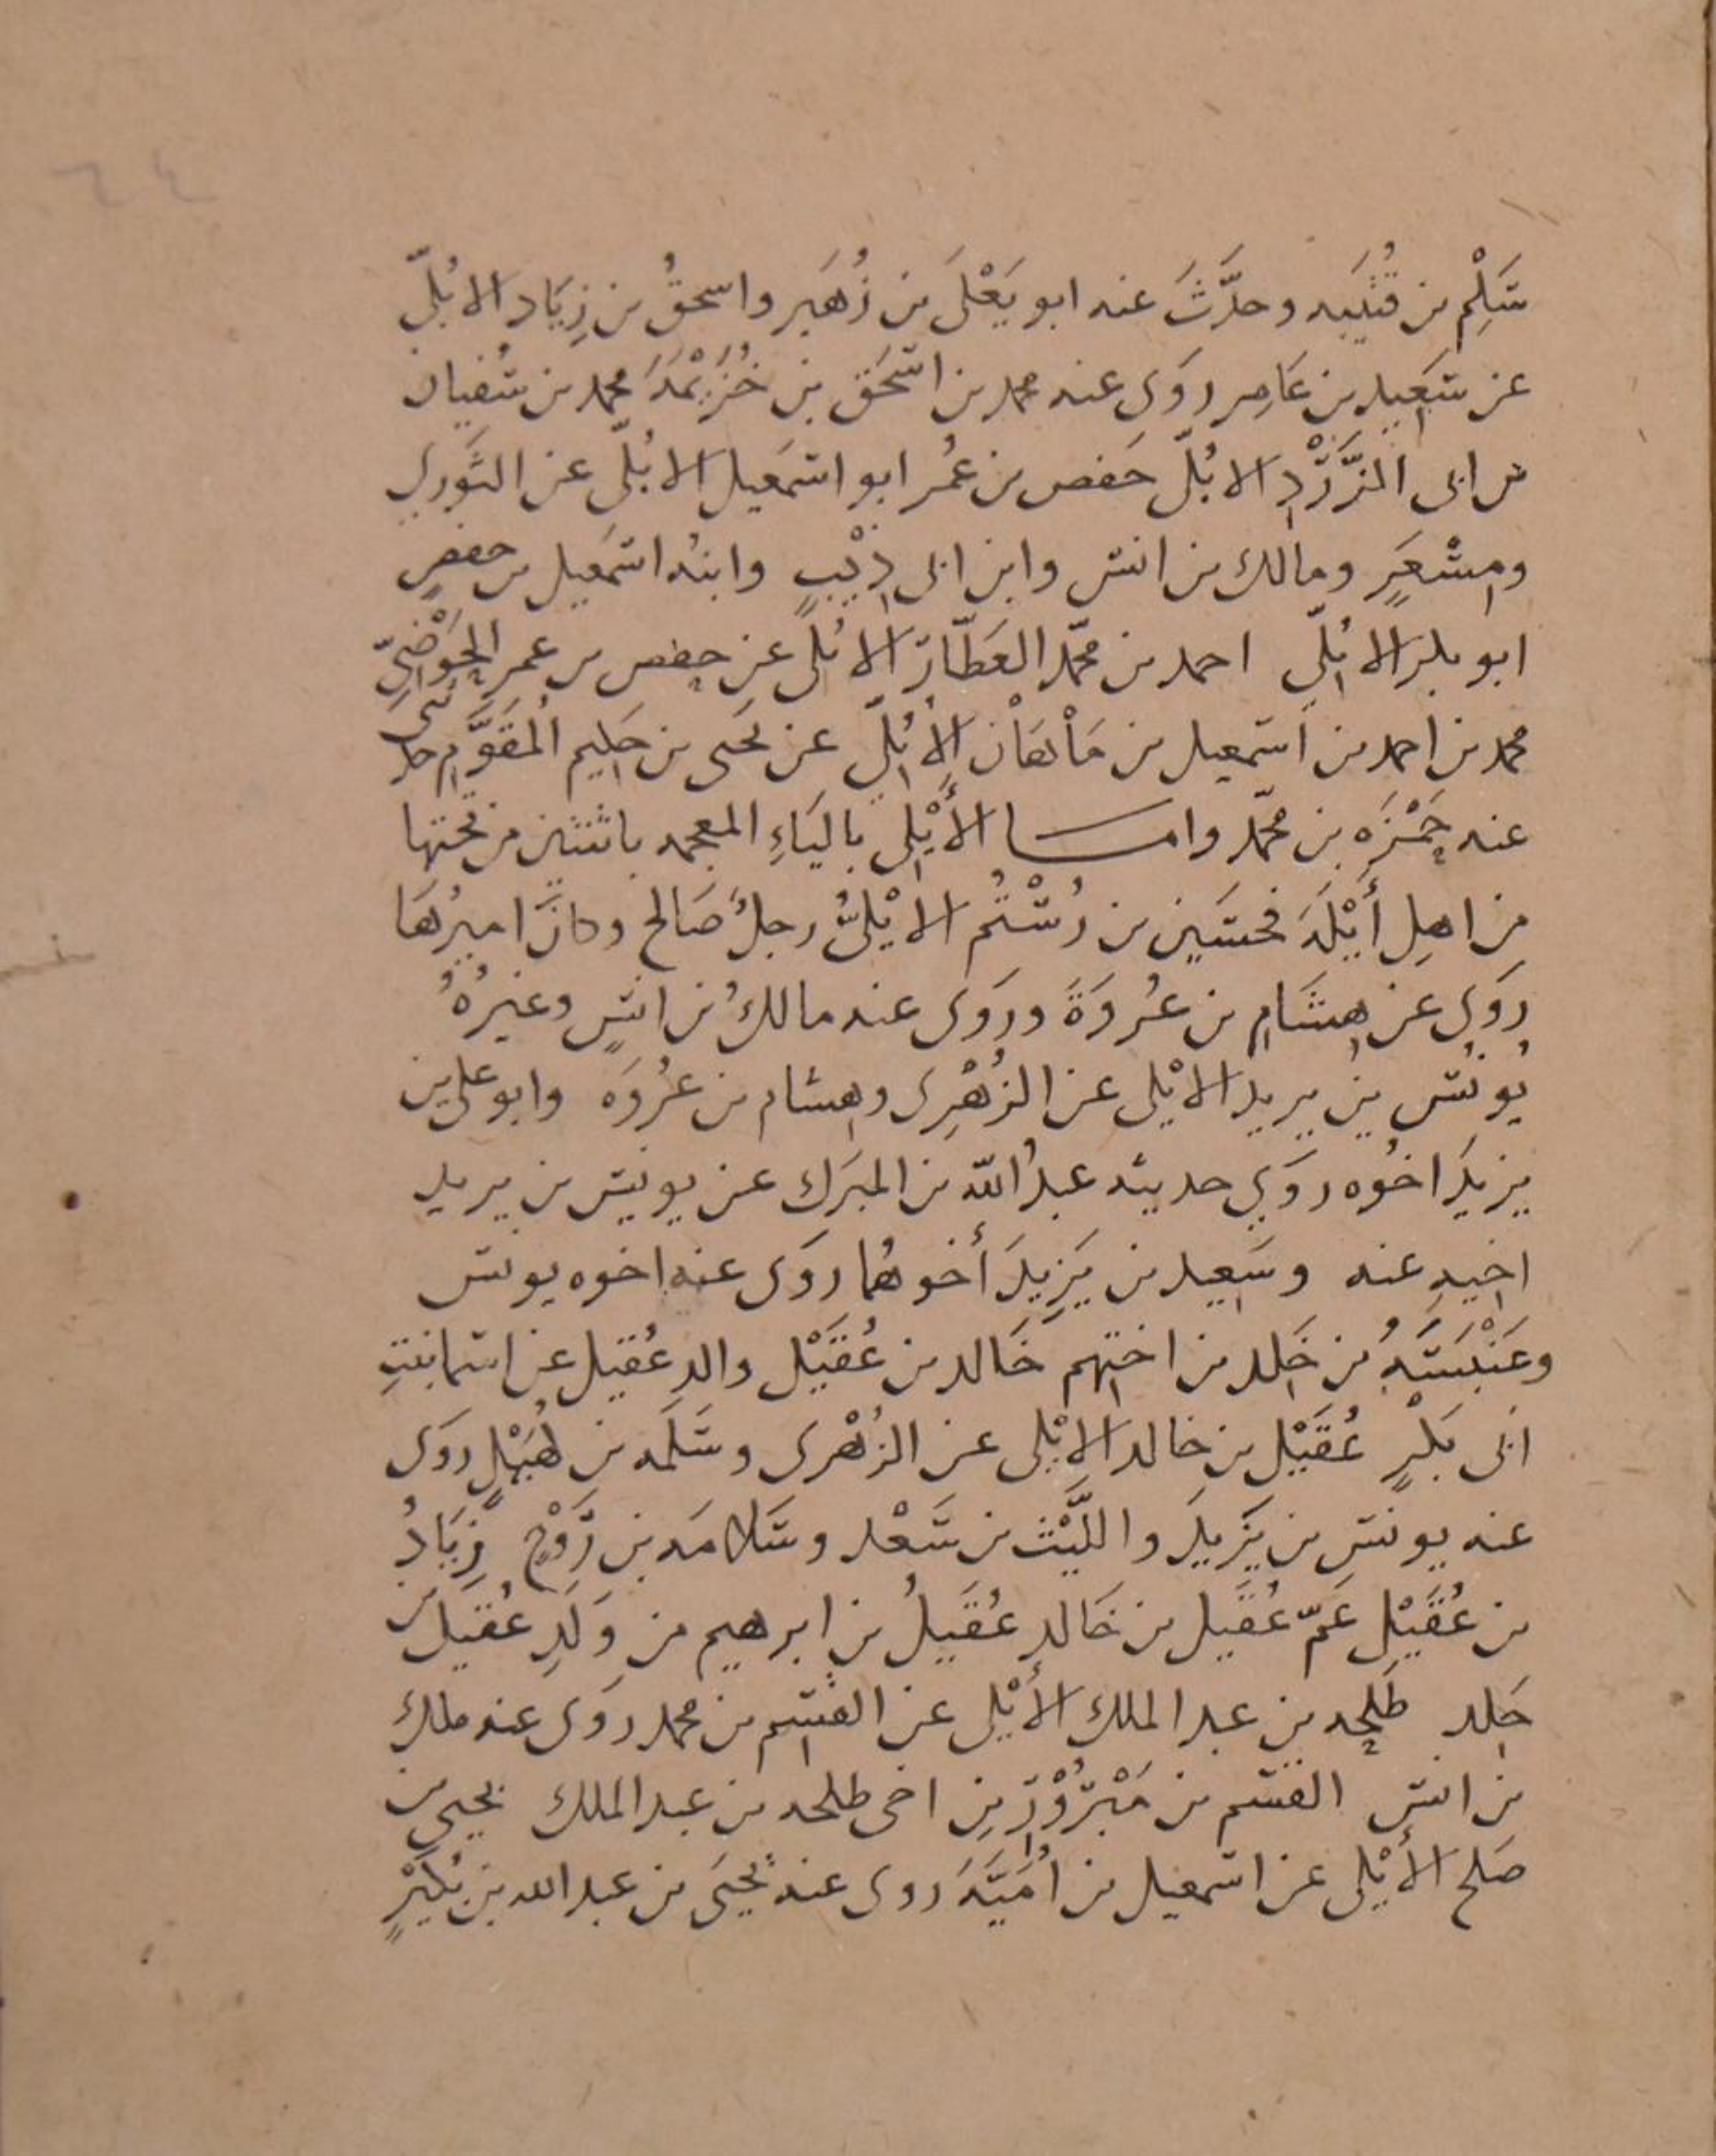 ٦٤
سَلْم بن قُتَيبه وحدَّثَ عنه ابو يَعْلَى بن زُهَير واسحقُ بن زِيَاد الابُلّي
عن سَعِيد بن عَامِر روَى عنه محمد بن اسْحَق بن خُزَيْمَةَ محمد بن سُفيان
بن ابى الزَّرَدِ الابُلّى حَفص بن عُمر ابو اسمَعيل الابُلّى عن الثَّوري
ومِسْعَرٍ ومالك بن انس وابن ابى ذِيبٍ وابنُه اسمَعيل بن حفصٍ
ابو بكر الابُلّي احمد بن محمّد العَطَّار الابُلّى عن حفص بن عمر الحَوْضِيّ
محمد بن احمد بن اسمعيل بن مَاْهَان الأبُلّي عن يحيى بن حَكِيم المُقَوِّمِ حدثنى
عنه حَمْزَه بن محمّد وامــا الأَيْلِى باليَاءِ المعجمه باثنتين من تحتها
مِن اهلِ أَيْلَةَ فحسَين بن رُسْتُم الايْلىُّ رجلٌ صَالح وكانَ اميرُهَا
روَى عن هِشَامِ بن عُروَةَ وروَى عنه مالكُ بن انسٍ وغيرُهُ
يُونُس بن يزيد الايْلى عن الزُهْرِى وهِشام بن عُروَه وابو على بن
يزيدَ اخُوه روَي حديثه عبدُ اللّه بن المبرَك عن يونس بن يزيد
اخيهِ عنه وسَعِيد بن يَزِيدَ أخوهُما روَى عنه اخوه يونس
وعَنْبَسَةُ بن خَلِد بن اختِهم خَالد بن عُقَيْل والد عُقيل عن اسما بنتِ
ابى بَكْرٍ عُقَيْل بن خالد الايْلِى عن الزُهْرى وسَلَمه بن كُهَيْلٍ روَى
عنه يونس بن يَزِيدَ والليَّث بن سَعْد وسَلامَه بن رَوْحٍ زِيَادُ
بن عُقَيْلٍ عَمّ عُقَيل بن خَالدٍ عُقَيلُ بن ابرهيم من وَلَدِ عُقَيل بن
خَلِد طَلحه بن عبد الملك الأَيْلِى عن القسِم بن محمد روَى عنه ملك
بن انس القسم بن مَبْرُوْرٍ بن اخى طلحه بن عبد الملك يحيى بن
صَلح الأَيْلِى عن اسمعيل بن اُمَيَّةَ روى عنه يحْيَى بن عبد الله بن بُكَيْرٍ